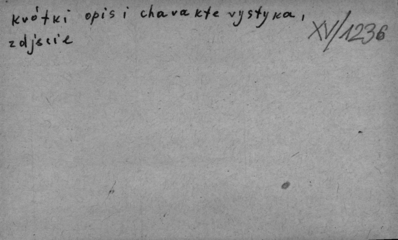 krótki opis i charakterystyka,
zdjęcie
XV/1236